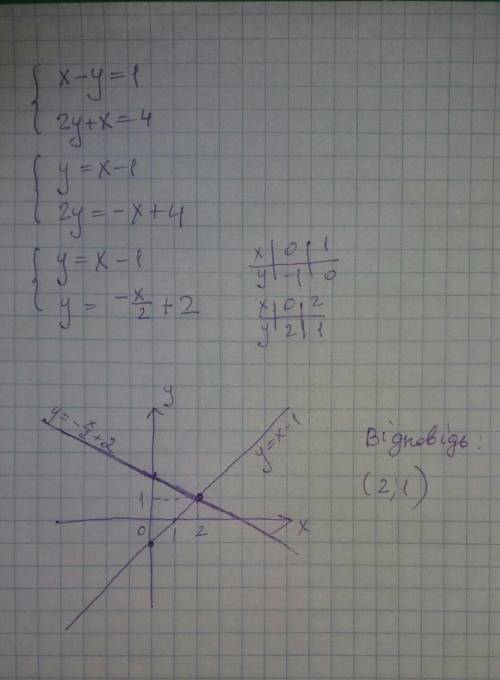 x-y=1
2y+x=4
y=x-1
2y=-x+4
y=x-1
y=-x/2+2
x | 0 | 1
y | -1 | 0
x | 0 | 2
y | 2 | 1
y
y=-x/2+2
y=x-1
1
0
1
2
x
Відповідь:
(2;1)